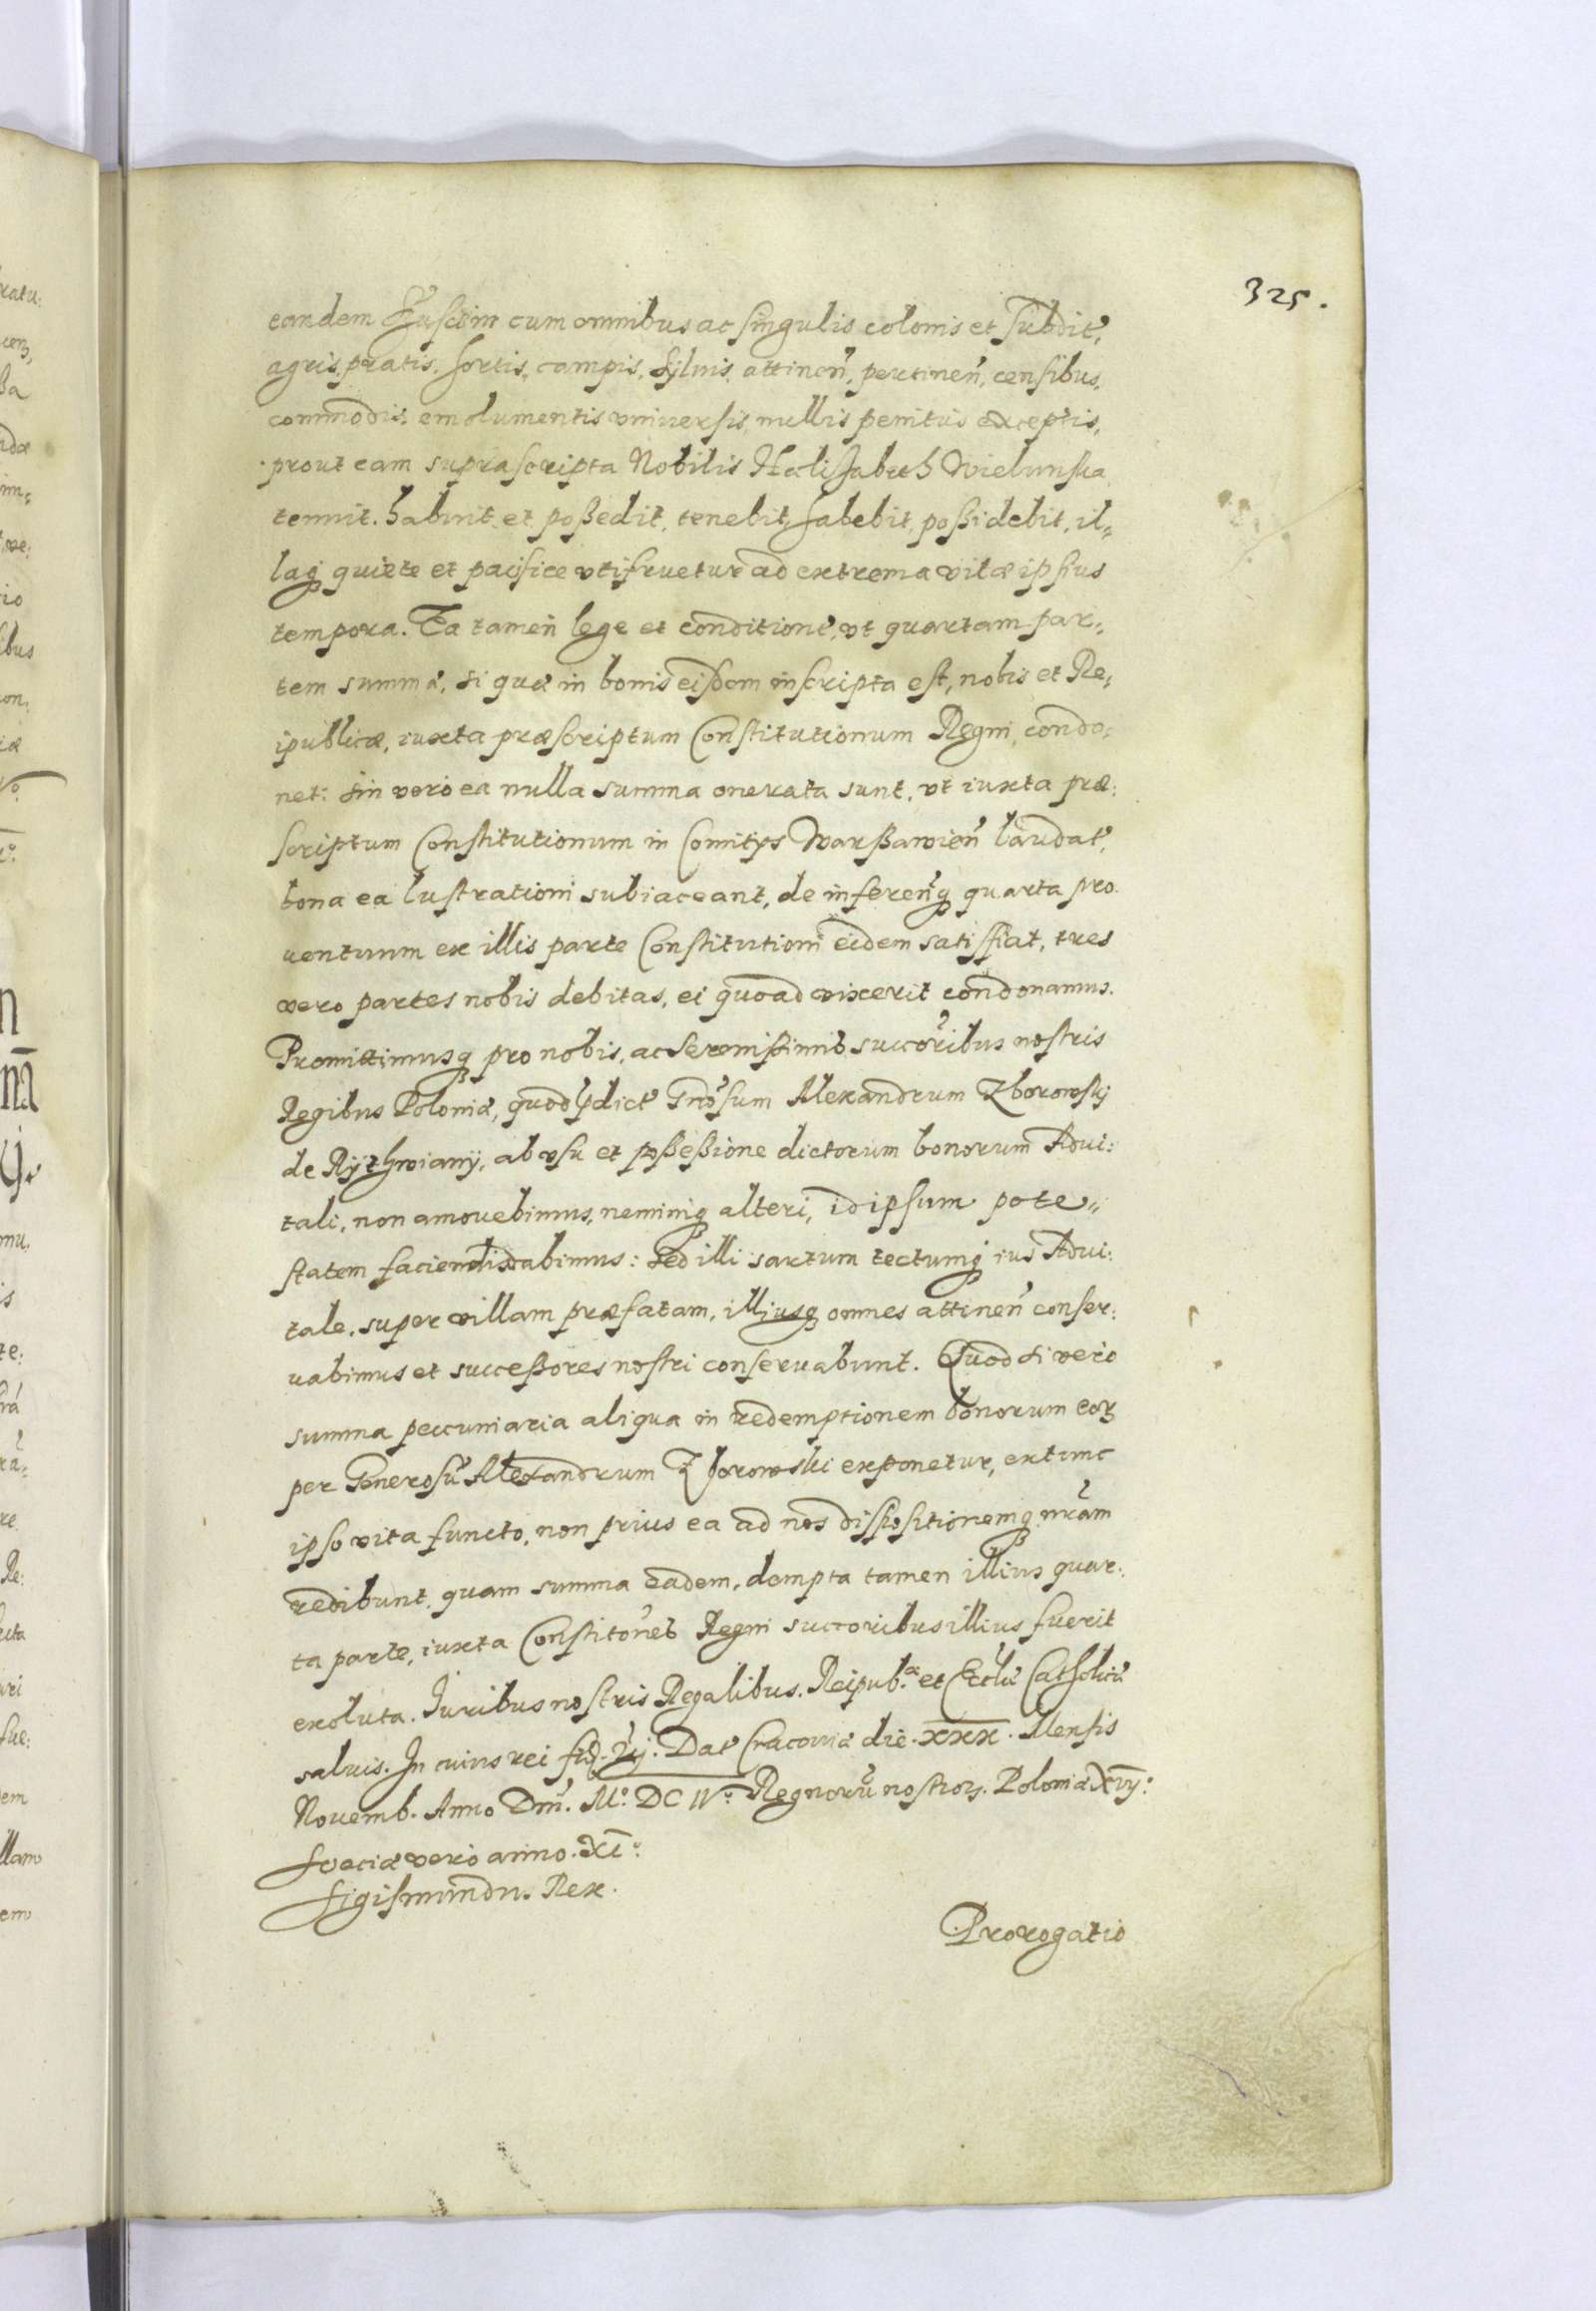 325.
eandem cum omnibus ac singulis colonis et subdit,
agris, pratis, hortis, campis, sylvis, attinen, pertinen, censibus,
commodis, emolumentis vniuersis, nullis penitus exceptis,
prout eam suprascripta Nobilis Helisabeth Wielunska
tenuit, habuit et poßedit, tenebit, habebit, poßidebit, il=
laq quiete et pacifice vtifruetur ad extrema vitæ ipsius
tempora. Ea tamen lege et conditione, vt quartam par=
tem summæ, si quæ in bonis eisdem inscripta est, nobis et Re=
ipublicæ, iuxta præscriptum Constitutionum Regni, condo=
net: sin vero ea nulla summa onerata sunt, vt iuxta præ:
scriptum Constitutionum in Comitijs Warßawien laudat,
bona ea lustrationi subiaceant, de inferenq quarta pro
uentuum ex illis parte Constitutioni eidem satisfiat, tres
vero partes nobis debitas, ei quoad vixerit condonamus.
Promittimusq pro nobis, ac Serenißimis succoribus nostris
Regibus Poloniæ, quod pdict Gnosum Alexandrum Zborowskj
de Rÿthwianÿ, ab vsu et poßeßione dictorum bonorum Advi:
tali, non amouebimus, neminiq alteri, id ipsum pote=
statem faciendi dabimus: sed illi sartum tectumq ius Advi:
tale, super villam præfatam, illiusq omnes attinen conser:
uabimus et succeßores nostri conseruabunt. Quod si vero
summa peccuniaria aliqua in redemptionem bonorum eor
per Generosu Alexandrum Zborowski exponetur, extunc
ipso vita functo, non prius ea ad nos dispositionemq nram
redibunt, quam summa eadem, dempta tamen illius quar:
ta parte, iuxta Constitones Regni succoribus illius fuerit
exoluta. Iuribus nostris Regalibus, Reipub.æ et Ecclæ Catholicæ
saluis. In cuius rei fid. Dat Cracouiæ die. xxx. Mensis
Nouemb. Anno Dni. Mº. DC IVº. Regnoru nostror. Poloniæ Xvij:
Sveciæ vero anno. XIº:
Sigismundu. Rex.
Prorogatio